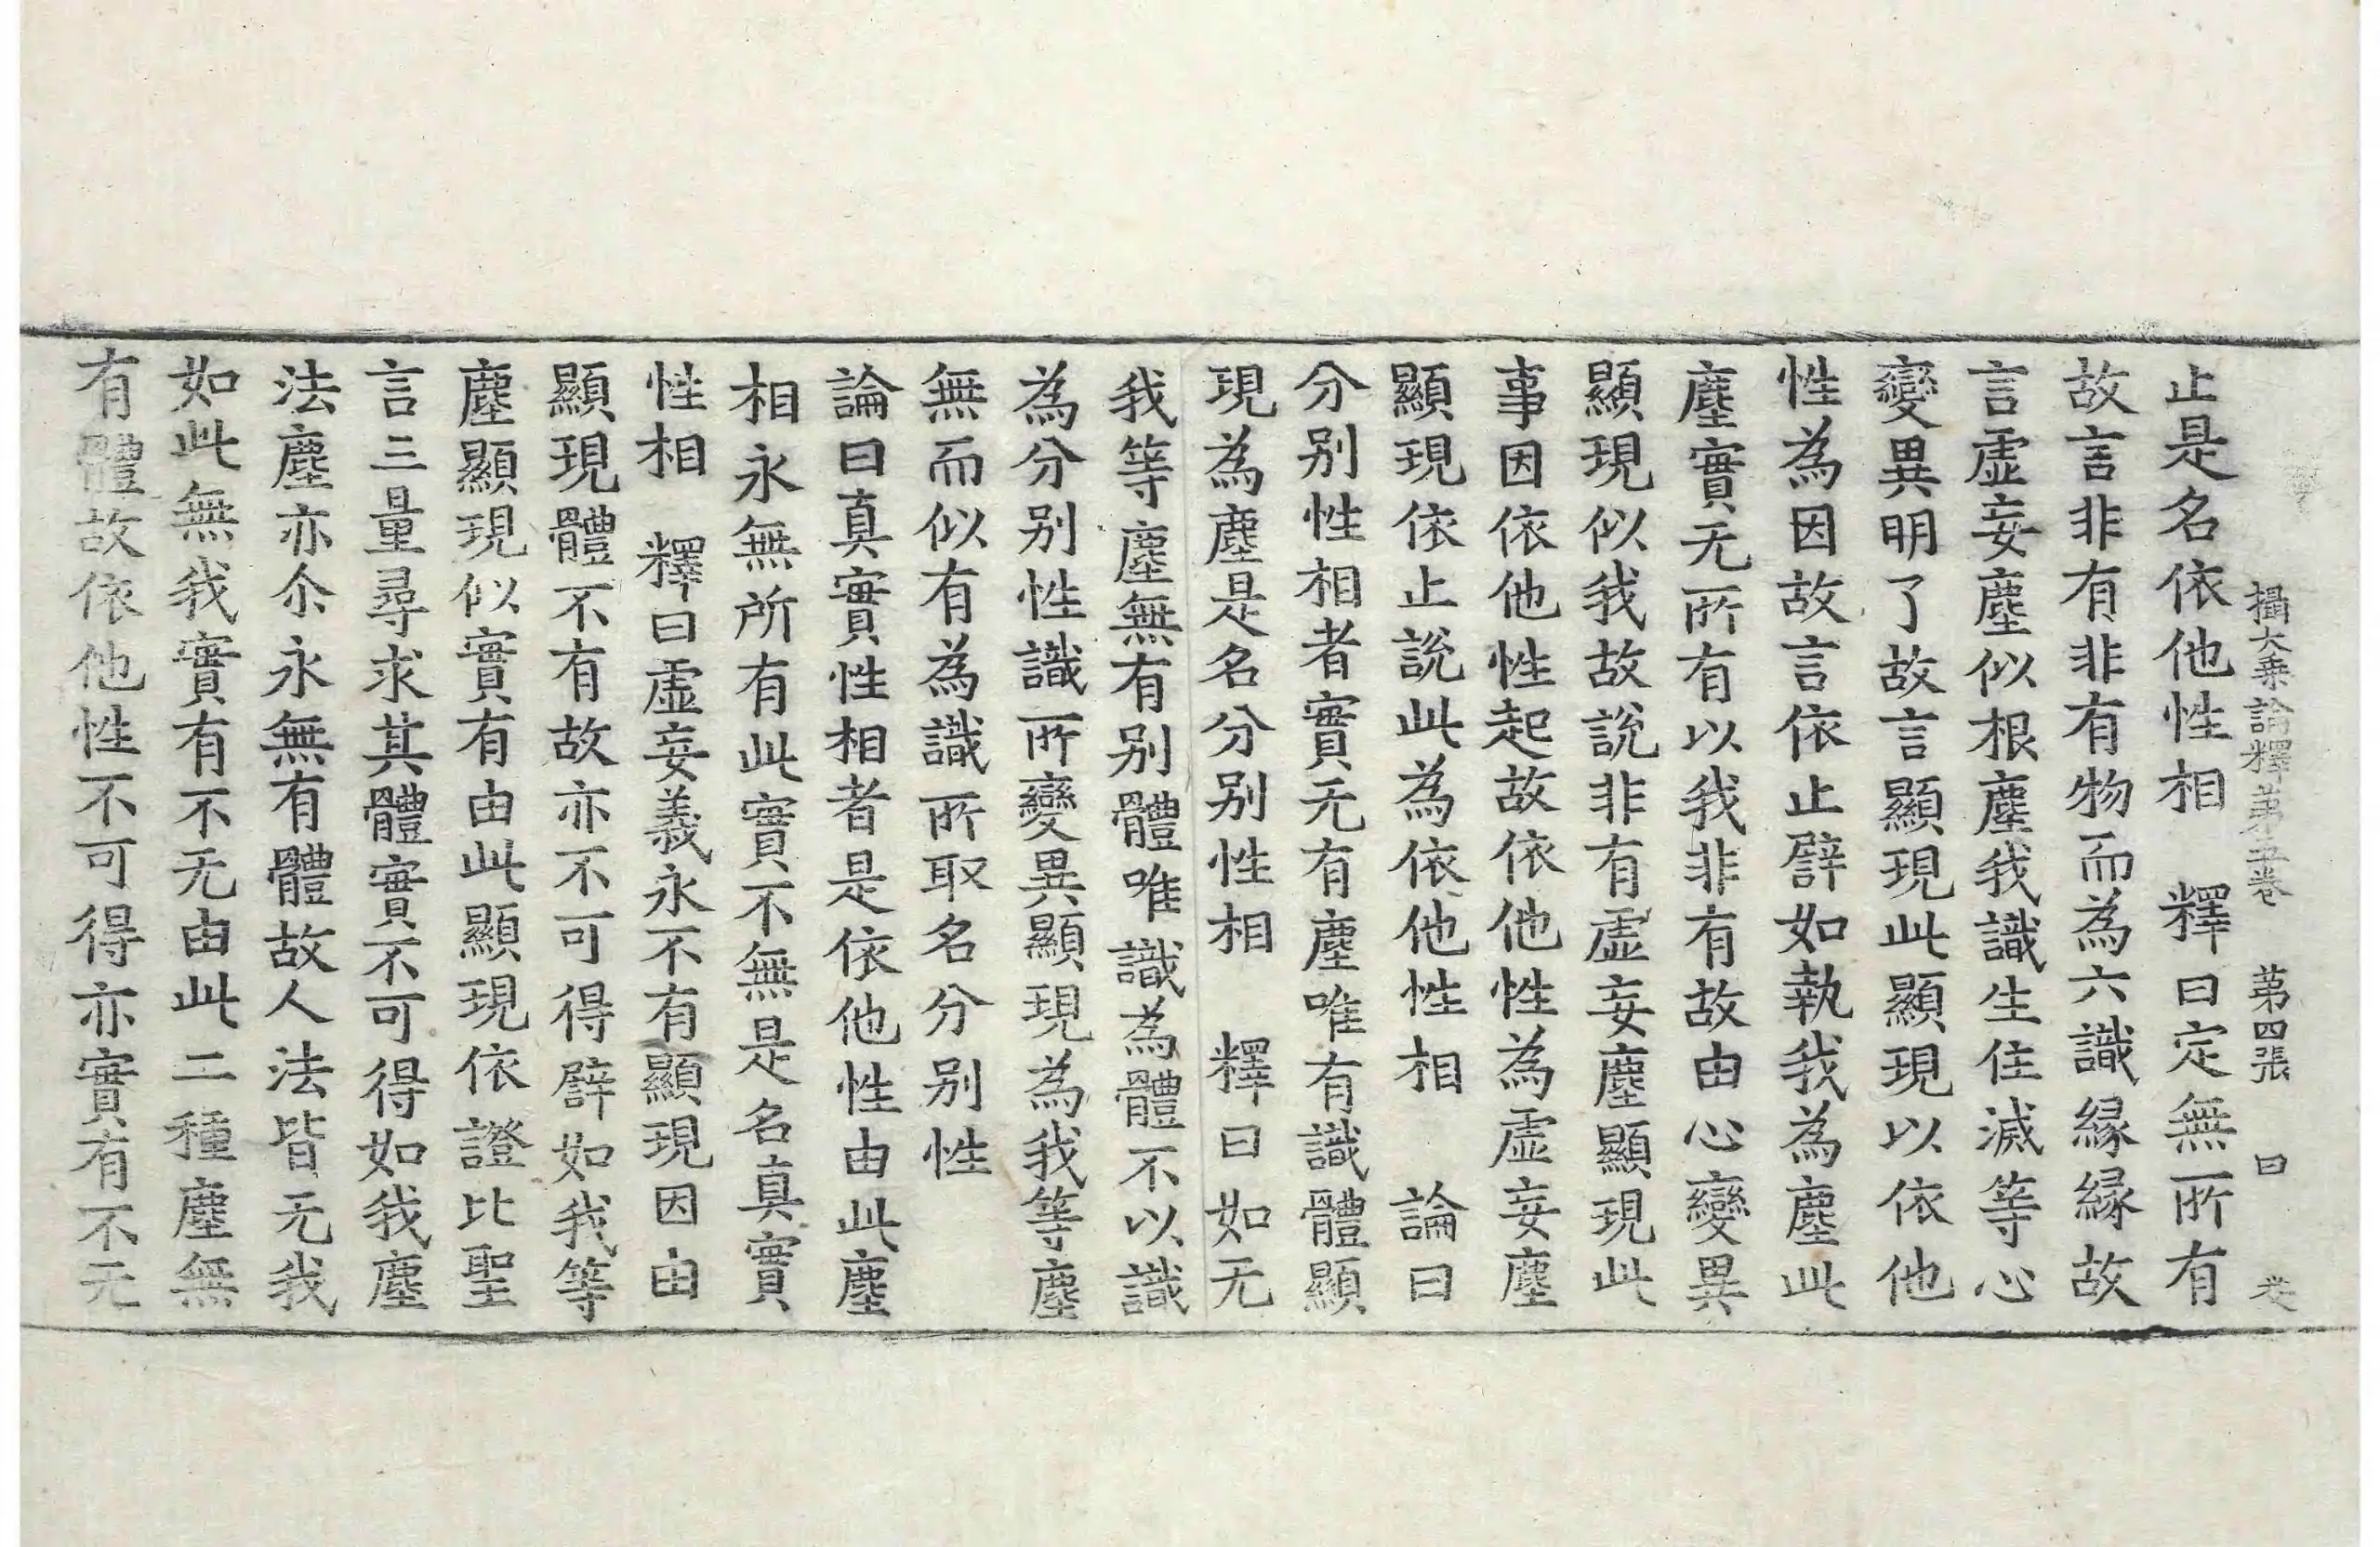 攝大乘論釋第五卷　第四張　曰
止是名依他性相　釋曰定無所有
故言非有非有物而為六識縁縁故
言虛妄塵似根塵我識生住滅等心
變異明了故言顯現此顯現以依他
性為因故言依止譬如執我為塵此
塵實无所有以我非有故由心變異
顯現似我故說非有虛妄塵顯現此
事因依他性起故依他性為虛妄塵
顯現依止說此為依他性相　論曰
分別性相者實无有塵唯有識體顯
現為塵是名分別性相　釋曰如无
我等塵無有別體唯識為體不以識
為分別性識所變異顯現為我等塵
無而似有為識所取名分別性
論曰真實性相者是依他性由此塵
相永無所有此實不無是名真實
性相　釋曰虛妄義永不有顯現因由
顯現體不有故亦不可得譬如我等
塵顯現似實有由此顯現依證比聖
言三量尋求其體實不可得如我塵
法塵亦尒永無有體故人法皆无我
如此無我實有不无由此二種塵無
有體故依他性不可得亦實有不无